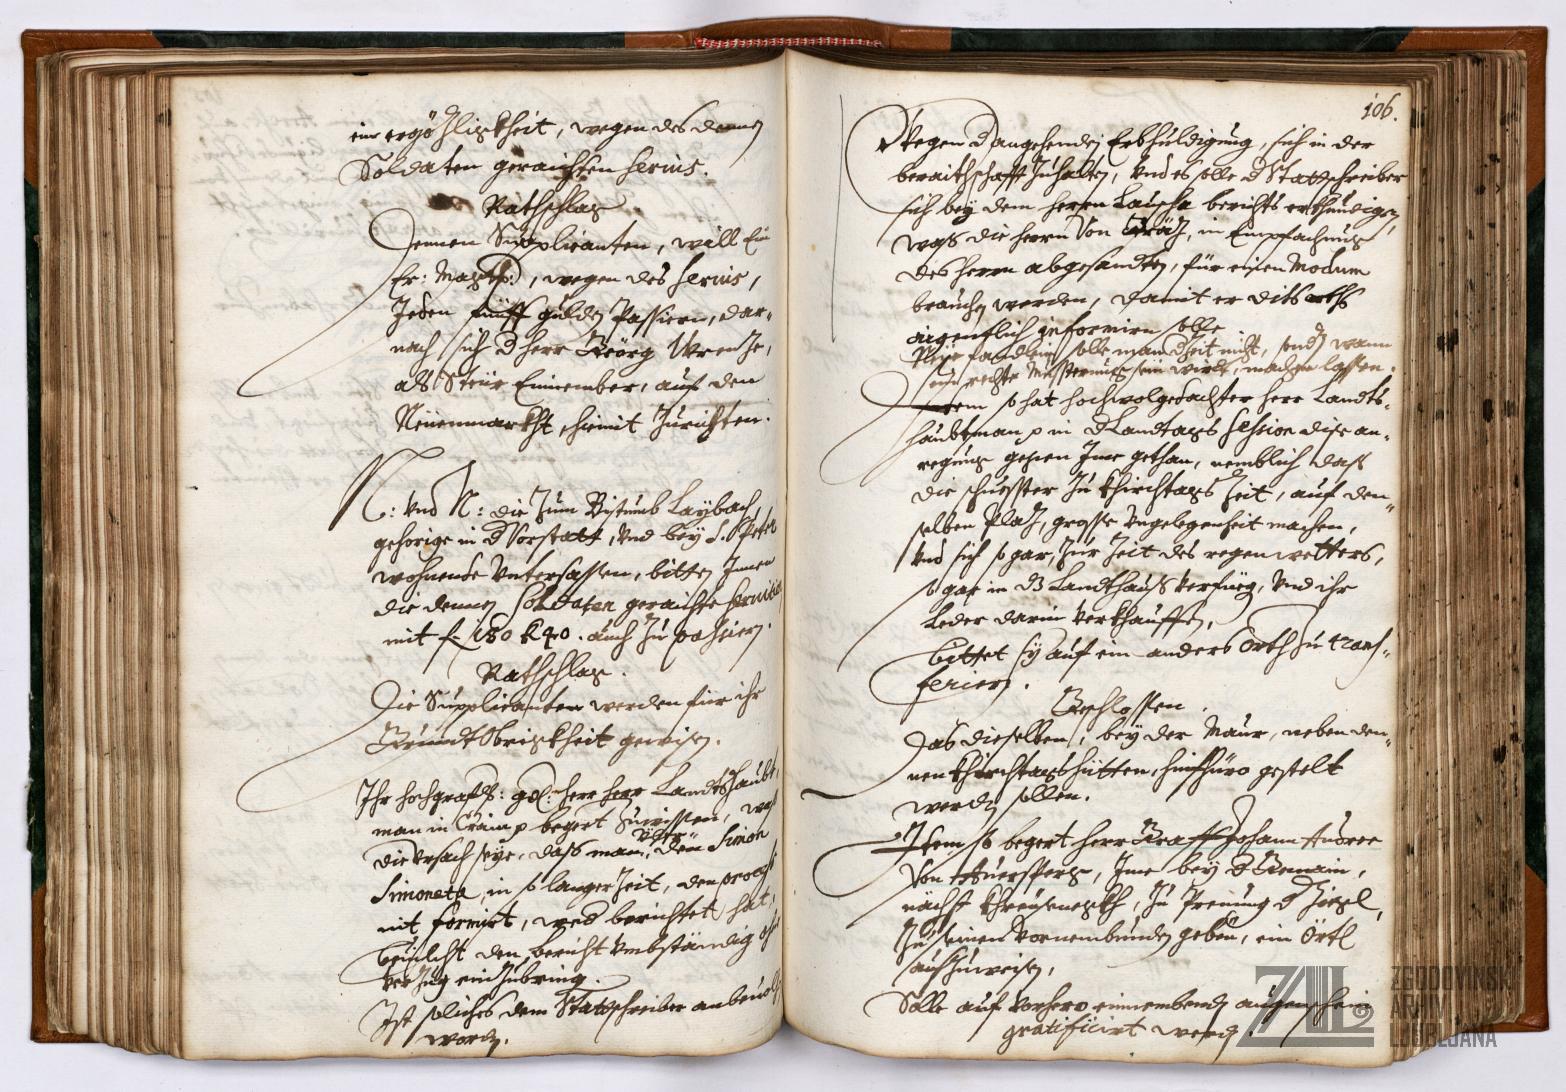 ein ergözlichkheit, wegen des denen
Soldaten geraichten servis.
Rathschlag
Jennen Supplicanten, will Ein
Er: Mag:, wegen des servis,
Jeden fünff gulden Passiern, dar-
nach sich d herr Geörg Wrenze,
als Steür Einnember, auf den
Neüenmarkht, hiemit Zurichten.
N: vnd N: die Zum Bistumb Laybach
gehörige in d Vorstatt, vnd bey S. Peter
wohnende vntersassen, bitten Jnnen
die dennen soldaten geraichte servitien
mit f 180 k 40. auch Zu passiern.
Rathschlag.
Die Supplicanten werden für ihr
Grundt Obrigkheit gewisen.
Ihr hochgräfl: gd: herr herr Landtshaubt-
man in Crain p begert Zuwissen, waß
die vrsach seye, dass man, über den Simon
Simoneta, in so langer Zeit, den process
nit formirt, vnd berichtet hat,
befilcht den bericht vmbständig ohne
verzug einzubring.
Ist solliches dem Stattschreiber anbeuolh
worden.
106.
Wegen d angehenden Erbhuldigung, sich in der
beraithschafft Zuhalten, vnd es solle d Stattschreiber
sich bey dem herrn Laurha berichts erkhundigen,
was die herrn von Gräz, in Empfachung
des herrn abgesandten, für einen Modum
brauchen werden, damit er dits orths
aigentlich informirn solle
solle man d Zeit nicht, sonder wann
ein rechte Musterung sein wirdt, machen lassen.
Item so hat hochwolgedachter herr Landts-
haubtman p in d Landtags session dise an-
regung gegen Jme gethan, nemblich dass
die schuesster Zu khirchtags Zeit, auf den-
selben Plaz, grosse vngelegenheit machen,
vnd sich sogar, Zur Zeit des regenwetters,
sogar in dz Landthauss verfüeg, vnd ihr
Leder darin verkhauffen,
bittet sy auf ein anders orth zu transf-
ferieren.
Beschlossen.
Das dieselben, bey der Maur, neben den-
nen khirchtagshütten, hinfhüro gestelt
werden sollen.
Item so begert herr Graff Johann Andree
von Auersperg, Jme bey d Gemain,
nächst khreuzneckh, Zu Prenung d Ziegl,
Zu seinen vornembenden geben, ein Örtl
auszuweisen,
Solle auf vorhero einnembenden augenschein
gratificirt werden.
ZAL
ZGODOVINSKI
ARHIV
LJUBLJANA